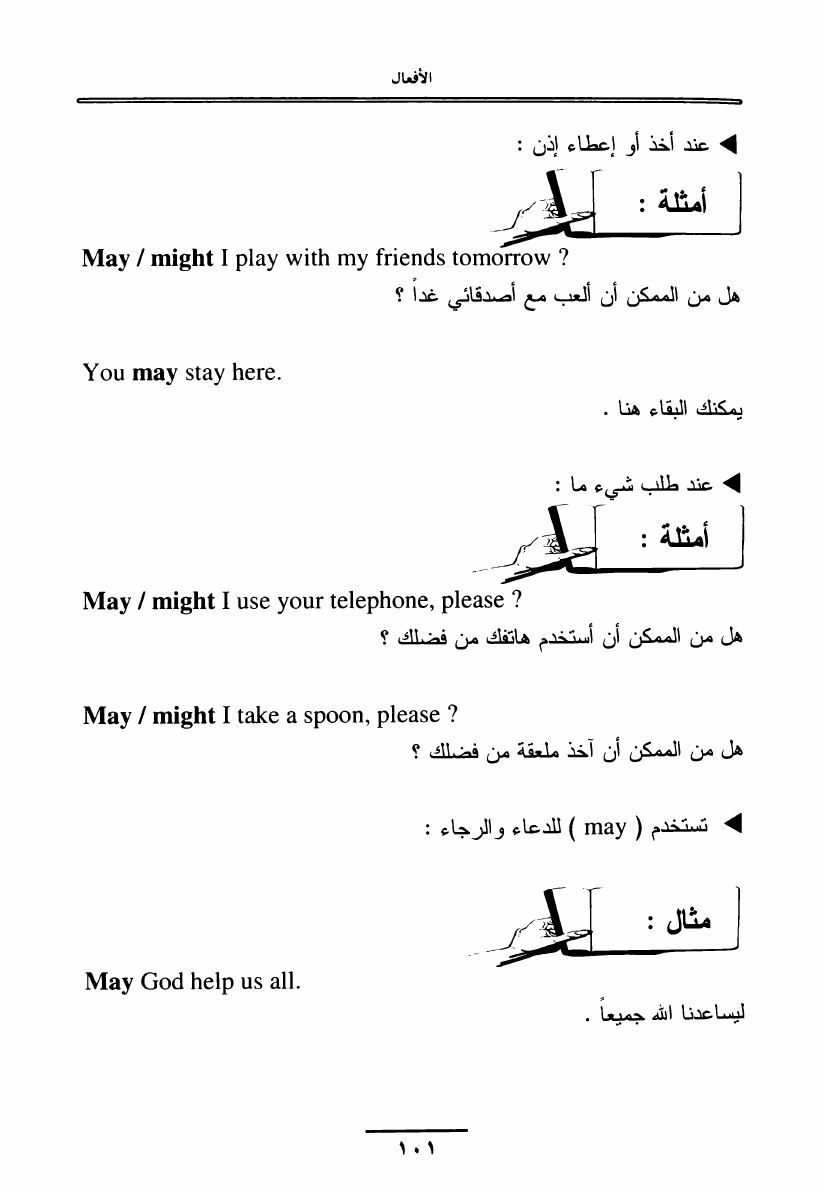 الأفعال
◄ عند أخذ أو إعطاء إذن :
أمثلة :
May / might I play with my friends tomorrow ?
هل من الممكن أن ألعب مع أصدقائي غداً ؟
You may stay here.
يمكنك البقاء هنا .
◄ عند طلب شيء ما :
أمثلة :
May / might I use your telephone, please ?
هل من الممكن أن أستخدم هاتفك من فضلك ؟
May / might I take a spoon, please ?
هل من الممكن أن آخذ ملعقة من فضلك ؟
◄ تستخدم ( may ) للدعاء والرجاء :
مثال :
May God help us all.
ليساعدنا الله جميعاً .
١٠١